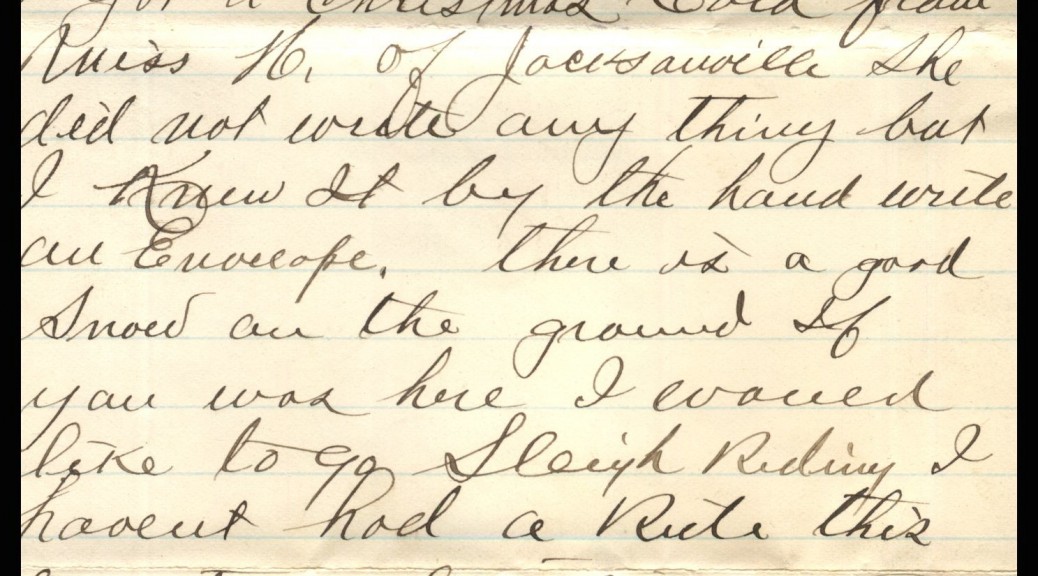 got a Christmas Card from
Kniss H. of Jacksonville She
did not write any thing but
I Knew It by the hand write
on Envelope. there is a good
Snow on the ground If
you was here I would
like to go Sleigh Riding I
havent had a Ride this